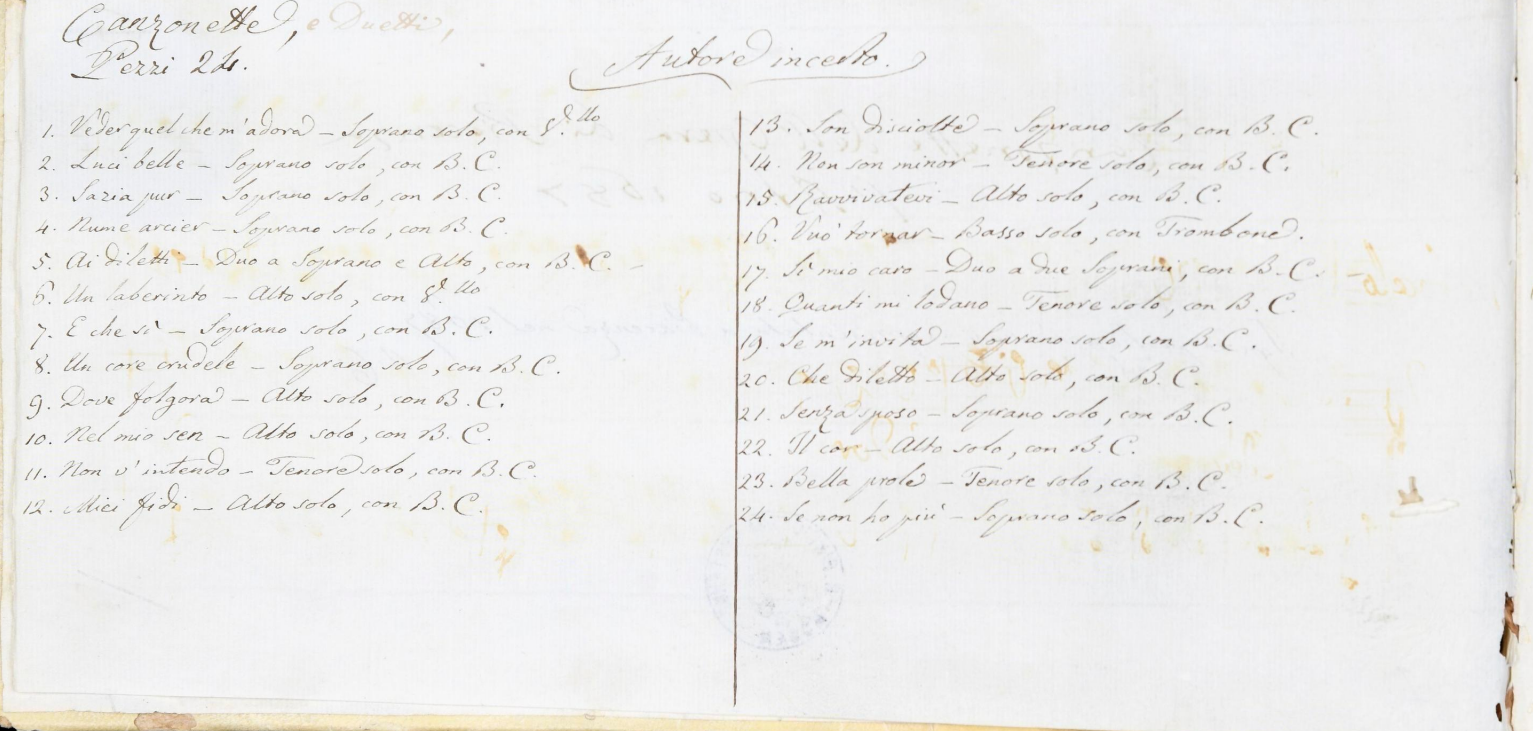 Canzonette, e Duetti,
Pezzi 24.
Autore incerto.
1. Veder quel che m'adora – Soprano solo, con V.llo
2. Luci belle – Soprano solo, con B. C.
3. Sazia pur – Soprano solo, con B. C.
4. Nume arcier – Soprano solo, con B. C.
5. Ai diletti – Duo a Soprano e Alto, con B. C. –
6. Un laberinto – Alto solo, con V.llo
7. E che sì – Soprano solo, con B. C.
8. Un core crudele – Soprano solo, con B. C.
9. Dove folgora – Alto solo, con B. C.
10. Nel mio sen – Alto solo, con B. C.
11. Non v'intendo – Tenore solo, con B. C.
12. Miei fidi – Alto solo, con B. C.
13. Son disciolte – Soprano solo, con B. C.
14. Non son minor – Tenore solo, con B. C.
15. Ravvivatevi – Alto solo, con B. C.
16. Vuò tornar – Basso solo, con Trombone.
17. Sì mio caro – Duo a due Soprani, con B. C.
18. Quanti mi lodano – Tenore solo, con B. C.
19. Se m'invita – Soprano solo, con B. C.
20. Che diletto – Alto solo, con B. C.
21. Senza sposo – Soprano solo, con B. C.
22. Il cor – Alto solo, con B. C.
23. Bella prole – Tenore solo, con B. C.
24. Se non ho più – Soprano solo, con B. C.